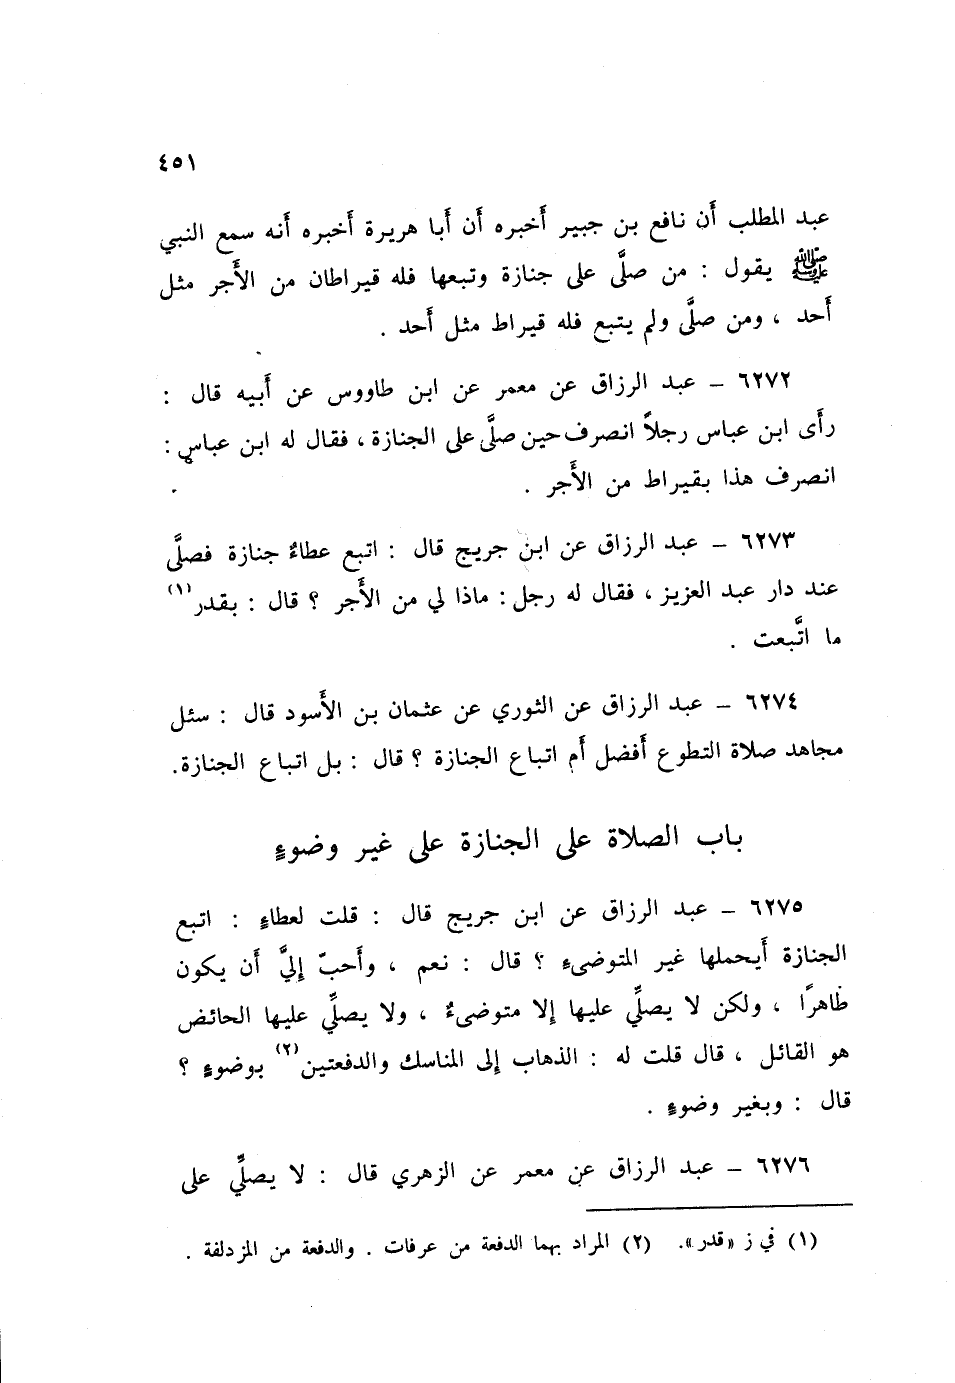 ٤٥١
عبد المطلب أن نافع بن جبير أخبره أن أبا هريرة أخبره أنه سمع النبي
ﷺ يقول : من صلَّى على جنازة وتبعها فله قيراطان من الأَجر مثل
أُحد ، ومن صلَّى ولم يتبع فله قيراط مثل أُحد .
٦٢٧٢ – عبد الرزاق عن معمر عن ابن طاووس عن أَبيه قال :
رأَى ابن عباس رجلاً انصرف حين صلَّى على الجنازة ، فقال له ابن عباس :
انصرف هذا بقيراط من الأَجر .
٦٢٧٣ – عبد الرزاق عن ابن جريج قال : اتبع عطاءٌ جنازة فصلَّى
عند دار عبد العزيز ، فقال له رجل : ماذا لي من الأَجر ؟ قال : بقدر(١)
ما اتَّبعت .
٦٢٧٤ – عبد الرزاق عن الثوري عن عثمان بن الأَسود قال : سئل
مجاهد صلاة التطوع أَفضل أَم اتباع الجنازة ؟ قال : بل اتباع الجنازة.
باب الصلاة على الجنازة على غير وضوءٍ
٦٢٧٥ – عبد الرزاق عن ابن جريج قال : قلت لعطاءٍ : اتبع
الجنازة أَيحملها غير المتوضىء ؟ قال : نعم ، وأَحبّ إليَّ أن يكون
طاهرًا ، ولكن لا يصلِّي عليها إلا متوضىءٌ ، ولا يصلِّي عليها الحائض
هو القائل ، قال قلت له : الذهاب إلى المناسك والدفعتين(٢) بوضوءٍ ؟
قال : وبغير وضوءٍ .
٦٢٧٦ – عبد الرزاق عن معمر عن الزهري قال : لا يصلِّي على
(١) في ز «قدر». (٢) المراد بهما الدفعة من عرفات . والدفعة من المزدلفة .